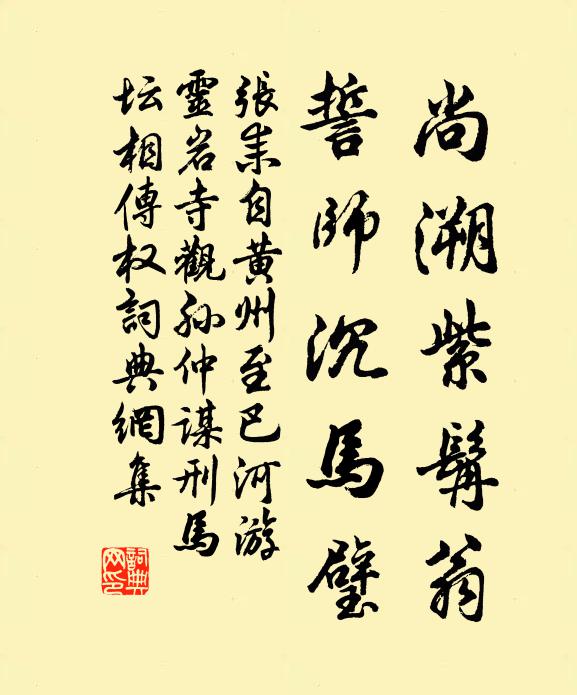 尚溯紫髯翁
誓師沉馬璧
張耒自黃州至巴河游
靈岩寺觀孙仲謀刑馬
坛相傳权詞典網集
詞典网印